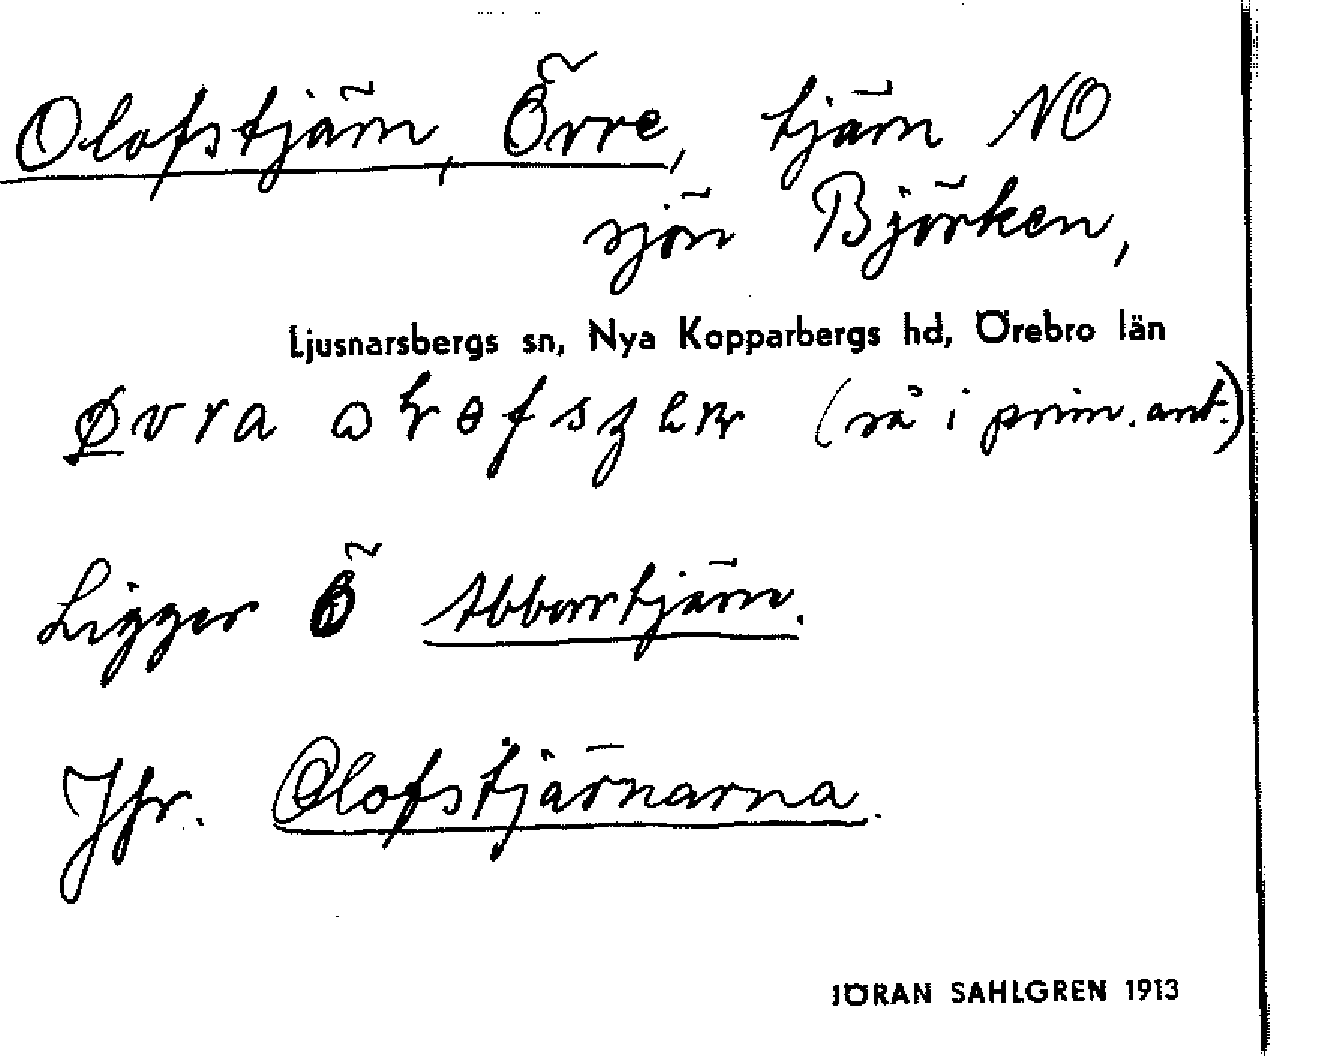 Olofstjärn, Övre, tjärn NO
sjön Björken,
Ljusnarsbergs sn, Nya Kopparbergs hd, Örebro län
(så i prim. ant.)
Ligger Ö Abborrtjärn.
Jfr. Olofstjärnarna.
JÖRAN SAHLGREN 1913